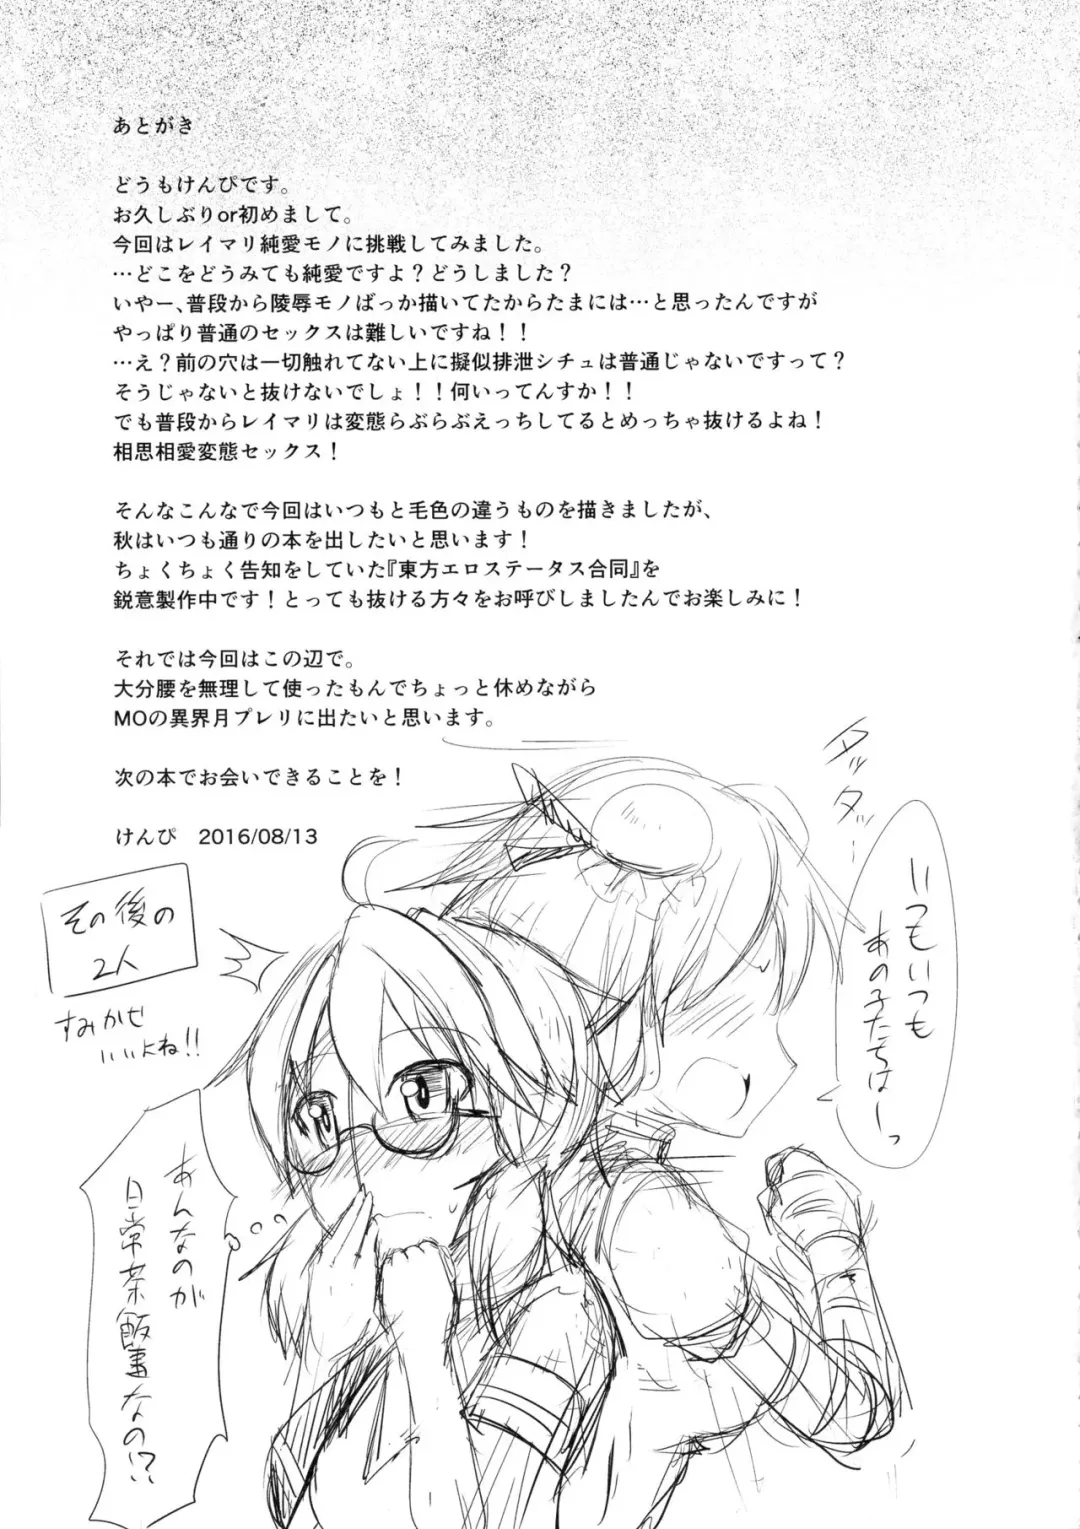 あとがき
どうもけんぴです。
お久しぶりor初めまして。
今回はレイマリ純愛モノに挑戦してみました。
…どこをどうみても純愛ですよ？どうしました？
いやー、普段から陵辱モノばっか描いてたからたまには…と思ったんですが
やっぱり普通のセックスは難しいですね！！
…え？前の穴は一切触れてない上に擬似排泄シチュは普通じゃないですって？
そうじゃないと抜けないでしょ！！何いってんすか！！
でも普段からレイマリは変態らぶらぶえっちしてるとめっちゃ抜けるよね！
相思相愛変態セックス！
そんなこんなで今回はいつもと毛色の違うものを描きましたが、
秋はいつも通りの本を出したいと思います！
ちょくちょく告知をしていた『東方エロステータス合同』を
鋭意製作中です！とっても抜ける方々をお呼びしましたんでお楽しみに！
それでは今回はこの辺で。
大分腰を無理して使ったもんでちょっと休めながら
MOの異界月プレリに出たいと思います。
次の本でお会いできることを！
けんぴ　2016/08/13
タッタッ…
いつもいつも
あの子たちはーっ
その後の
2人
すみかせ
いいよね!!
あんなのが
日常茶飯事なの!?